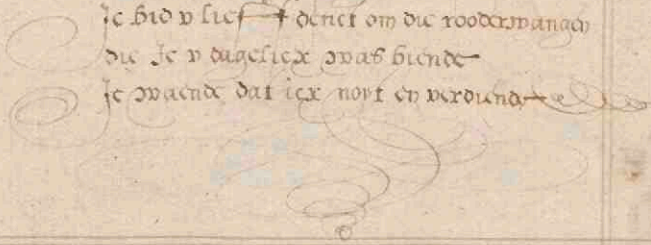 Ic bid v lief denct om die rooder wangen
die Ic v dagelicx was biende
Ic waende dat icx noyt en verdiende